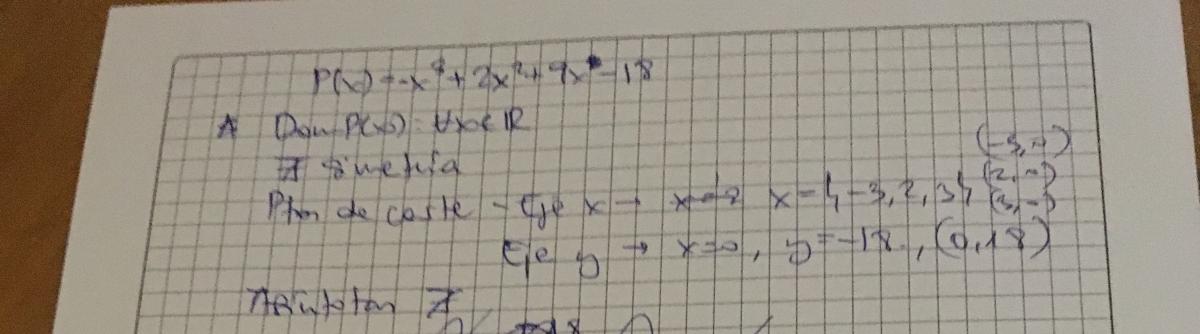 P(x) = -x³ + 2x² + 9x - 18
A Dom P(x): ∀x∈ℝ
∄ simetría
Ptos de corte - Eje x → x={-3,2,3} (-3, (2, (3,
Eje y → x=0, y=-18, (0,18)
Asíntotas ∄